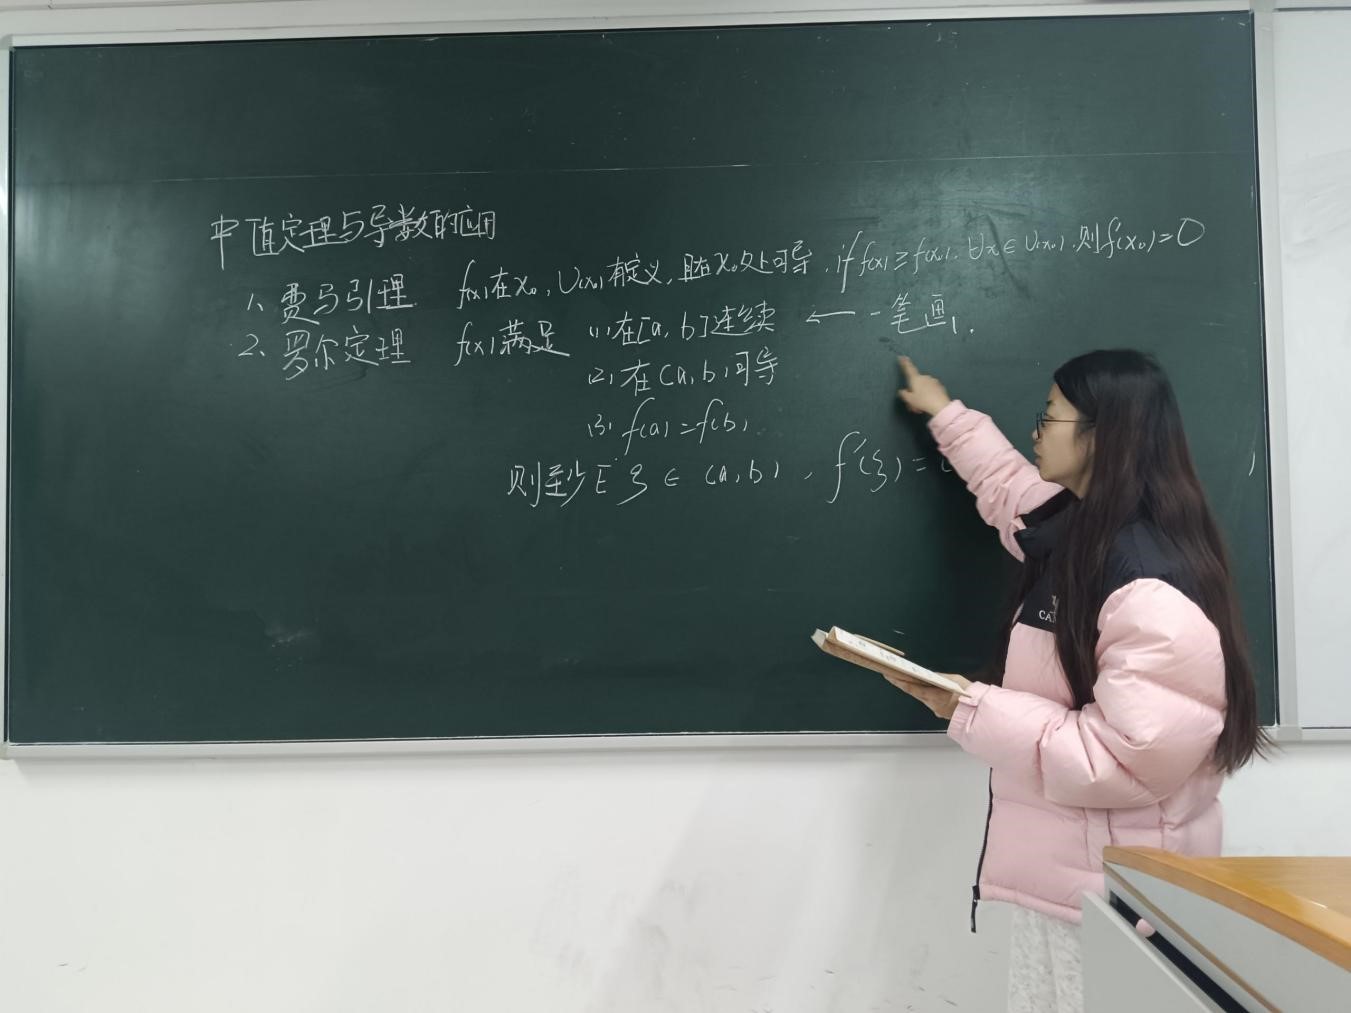 中值定理与导数的应用
1、费马引理 f(x)在x₀, U(x₀)有定义, 且在x₀处可导, if f(x)≥f(x₀), ∀x∈U(x₀), 则f'(x₀)=0
2、罗尔定理 f(x)满足 (1)在[a,b]连续 ← 一笔画,
(2)在(a,b)可导
(3) f(a)=f(b)
则至少 ξ∈(a,b), f'(ξ)=